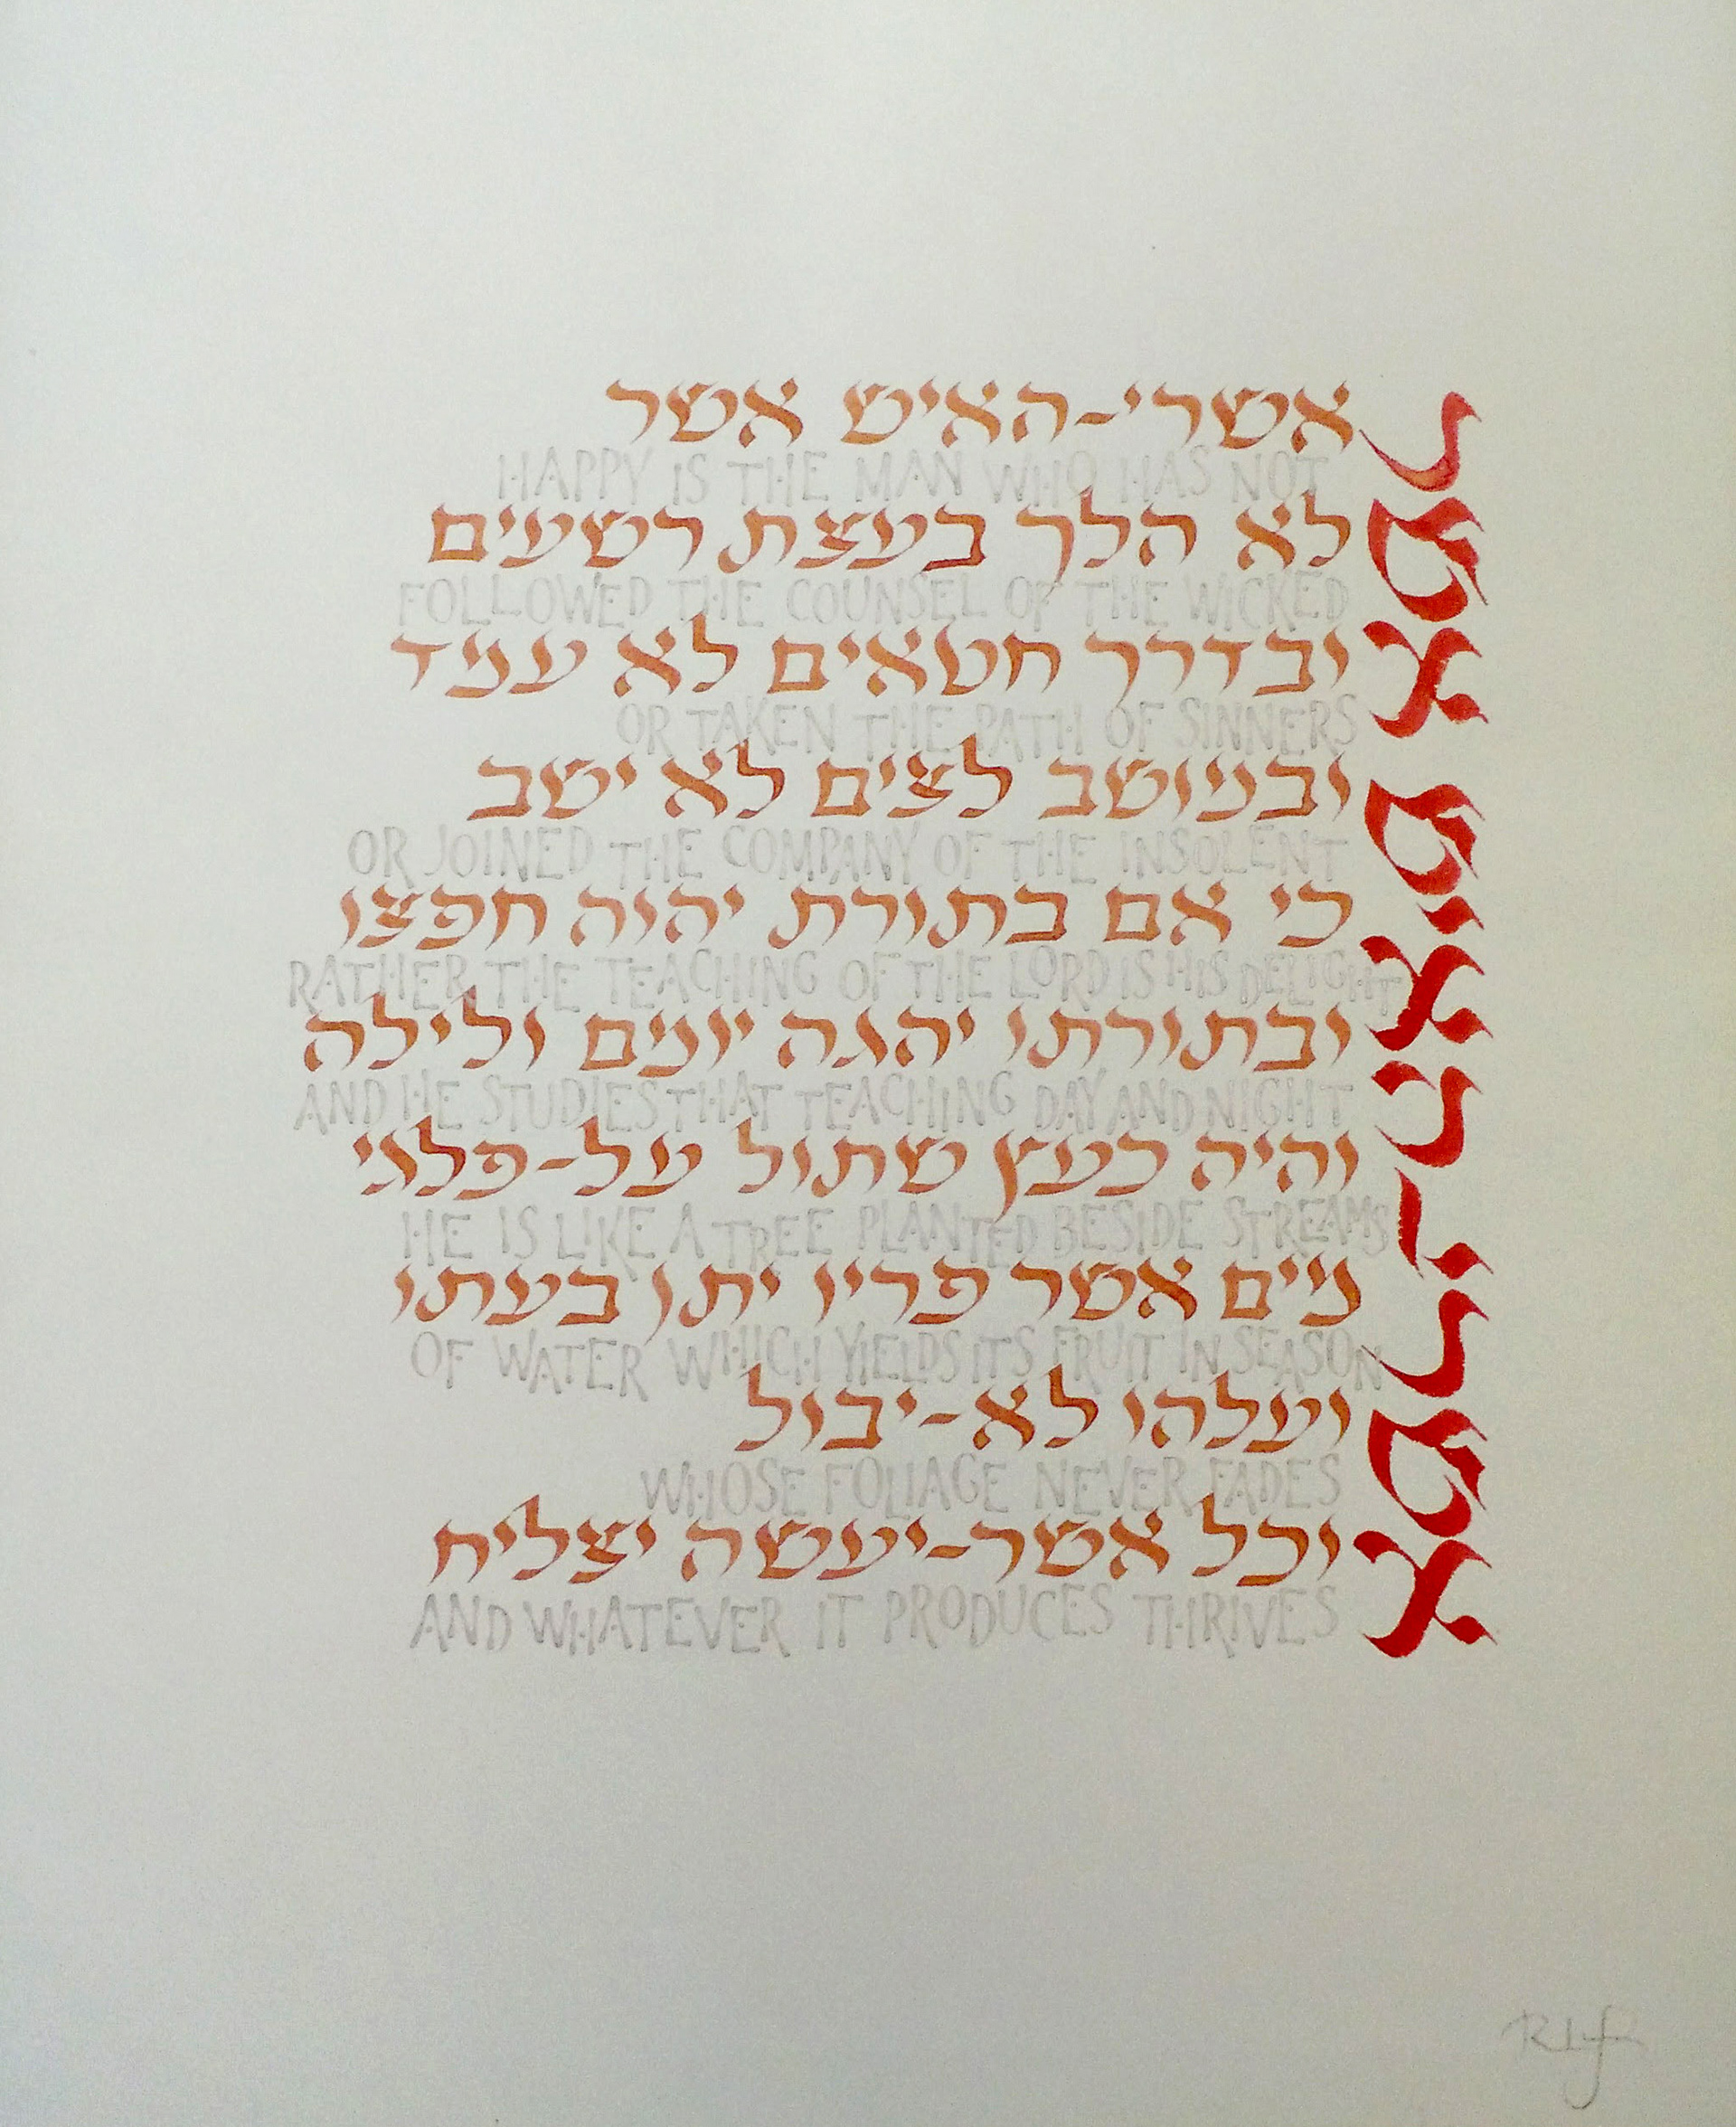 אשרי האיש אשר
אשרי-האיש אשר
HAPPY IS THE MAN WHO HAS NOT
לא הלך בעצת רשעים
FOLLOWED THE COUNSEL OF THE WICKED
ובדרך חטאים לא עמד
OR TAKEN THE PATH OF SINNERS
ובמושב לצים לא ישב
OR JOINED THE COMPANY OF THE INSOLENT
כי אם בתורת יהוה חפצו
RATHER THE TEACHING OF THE LORD IS HIS DELIGHT
ובתורתו יהגה יומם ולילה
AND HE STUDIES THAT TEACHING DAY AND NIGHT
והיה כעץ שתול על-פלגי
HE IS LIKE A TREE PLANTED BESIDE STREAMS
מים אשר פריו יתן בעתו
OF WATER WHICH YIELDS ITS FRUIT IN SEASON
ועלהו לא-יבול
WHOSE FOLIAGE NEVER FADES
וכל אשר-יעשה יצליח
AND WHATEVER IT PRODUCES THRIVES